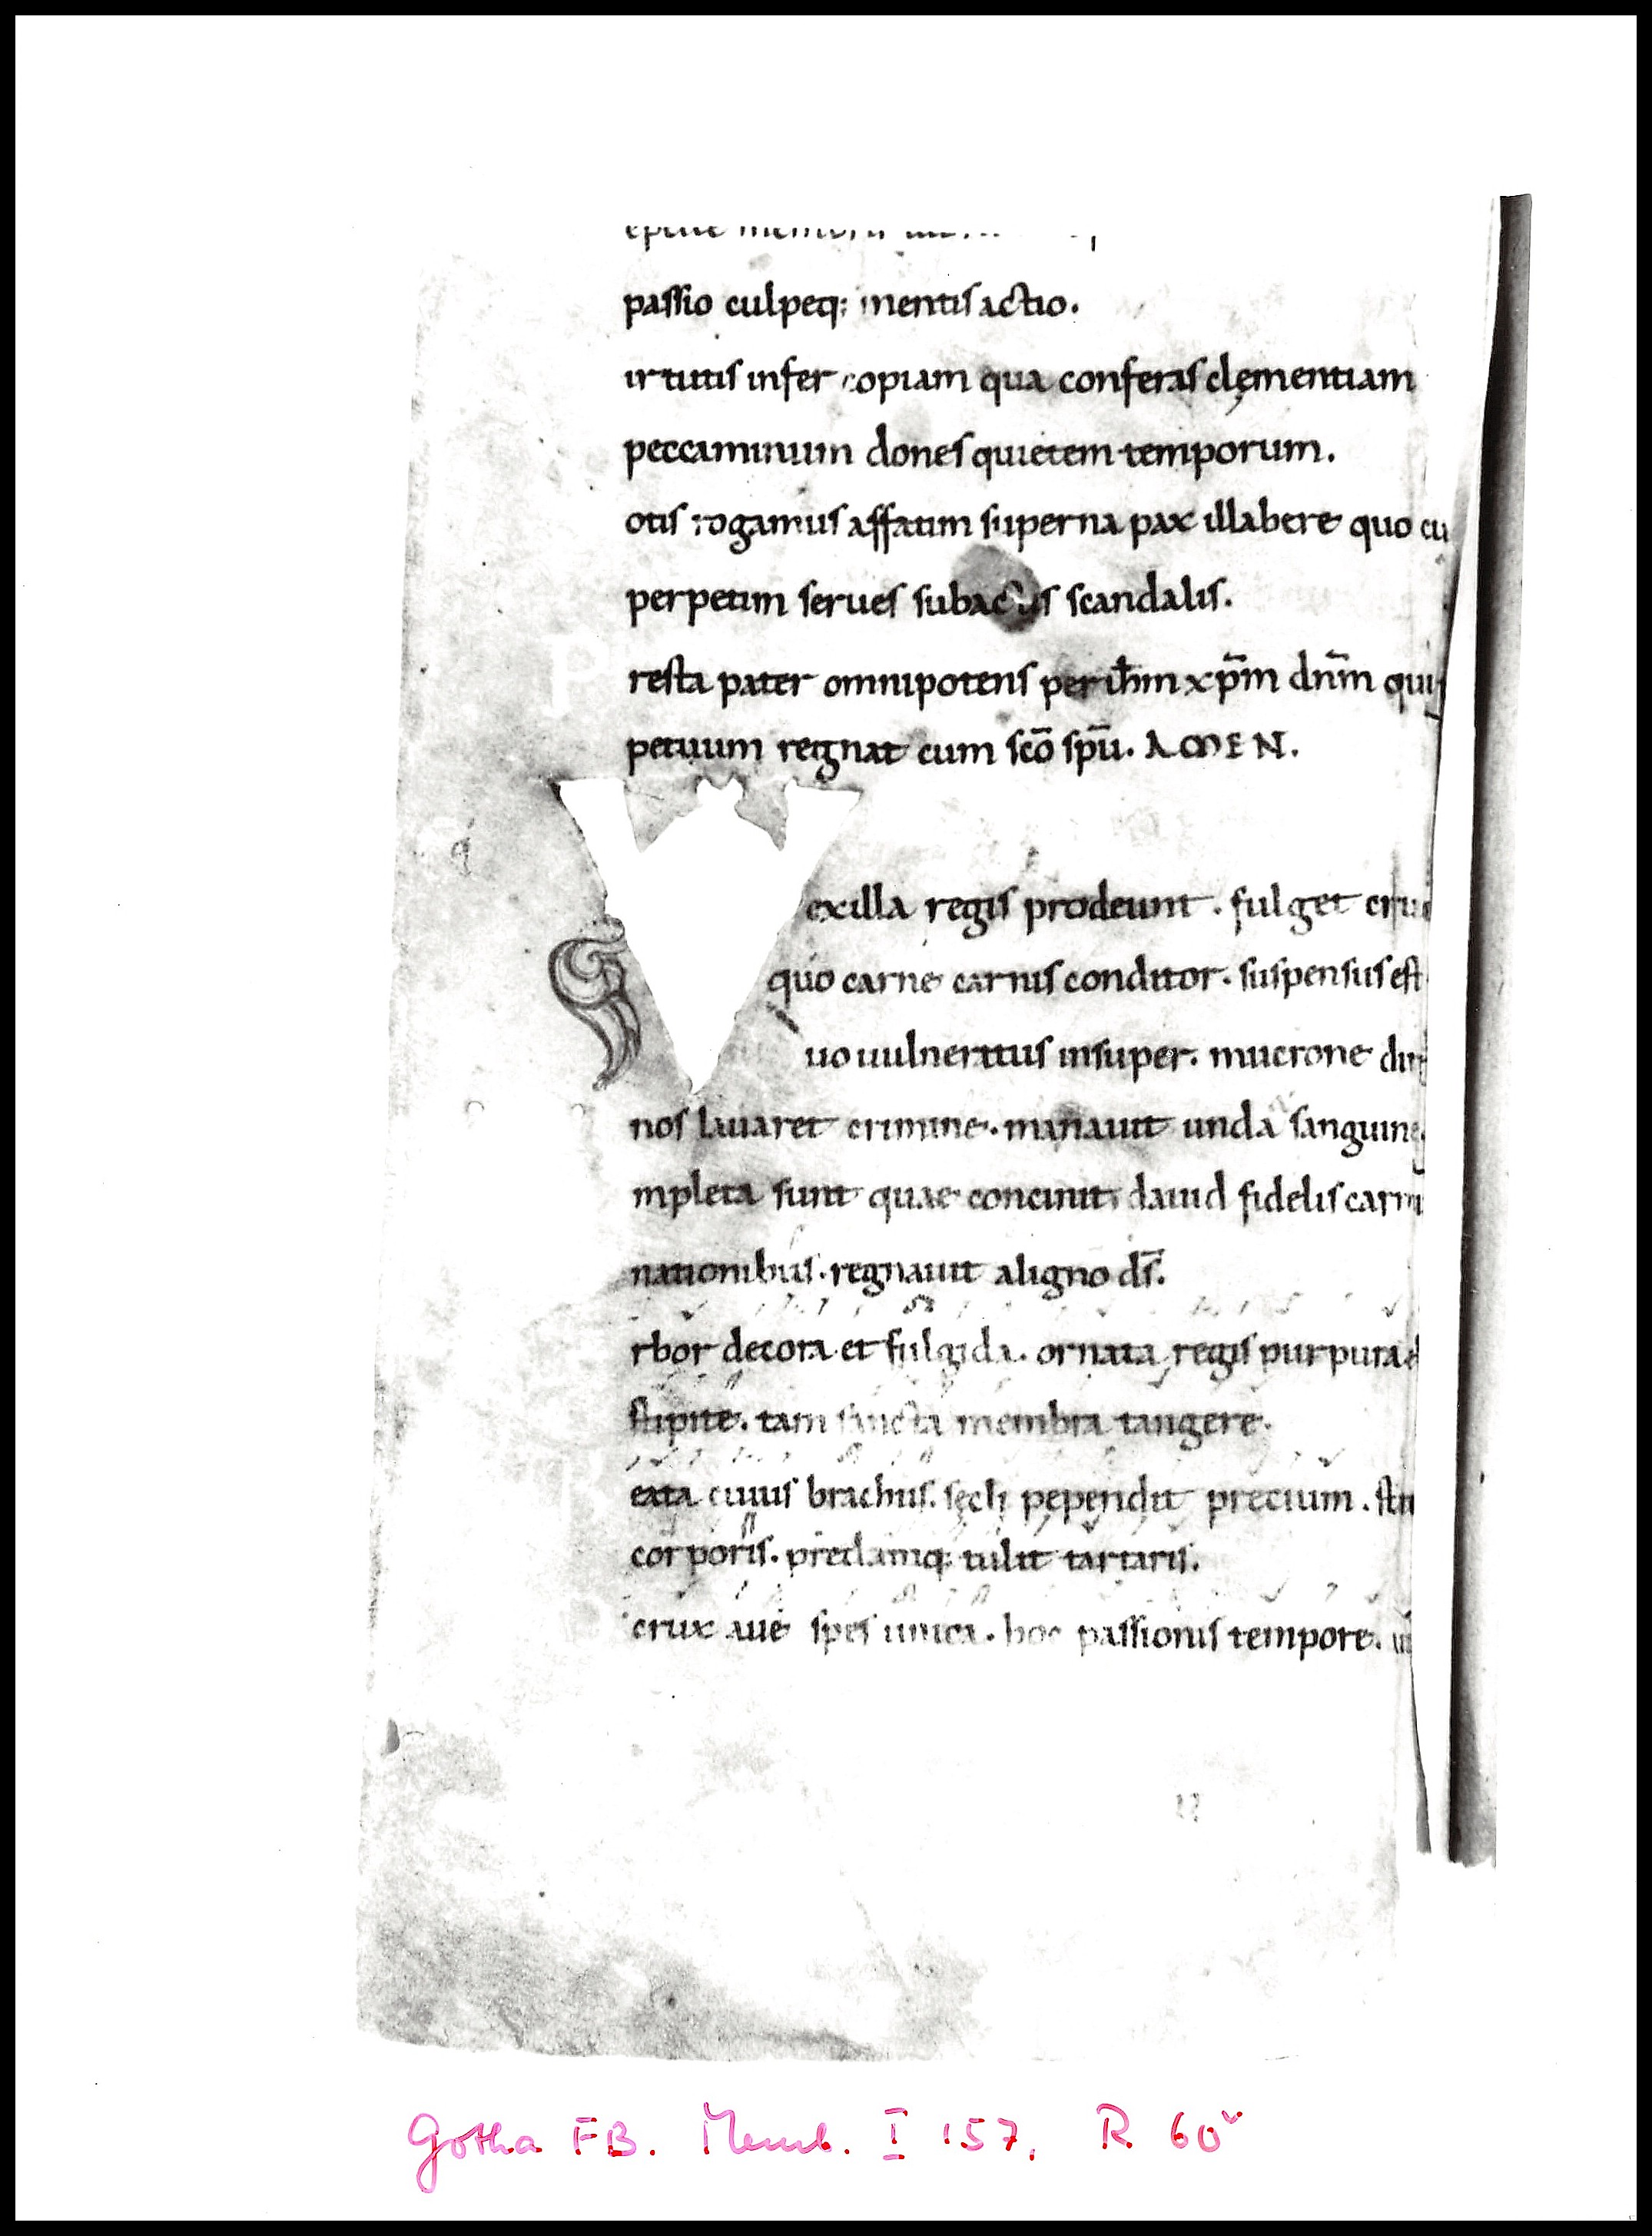 passio culpeq; mentis actio.
irtutis infer copiam qua conferas clęmentiam
peccaminum dones quietem temporum.
otis rogamus affatim superna pax illabere quo cu
perpetim serues subactis scandalis.
resta pater omnipotens per ih̅m xp̅m dn̅m qui
petuum regnat cum sco̅ spu̅. AMEN.
exilla regis prodeunt. fulget cru
quo carne carnis conditor. suspensus est
uo uulneratus insuper. mucrone dir
nos lauaret crimine. manauit unda sanguine
mpleta sunt quae concinit dauid fidelis carmi
nationibus. regnauit aligno ds̅.
rbor decora et fulgida. ornata regis purpura
stipite. tam sancta membra tangere.
eata cuius brachiis. sęcli pependit precium. sta
corporis. predamq; tulit tartaris.
crux aue spes unica. hoc passionis tempore.
Gotha FB. Memb. I 157, R 60v